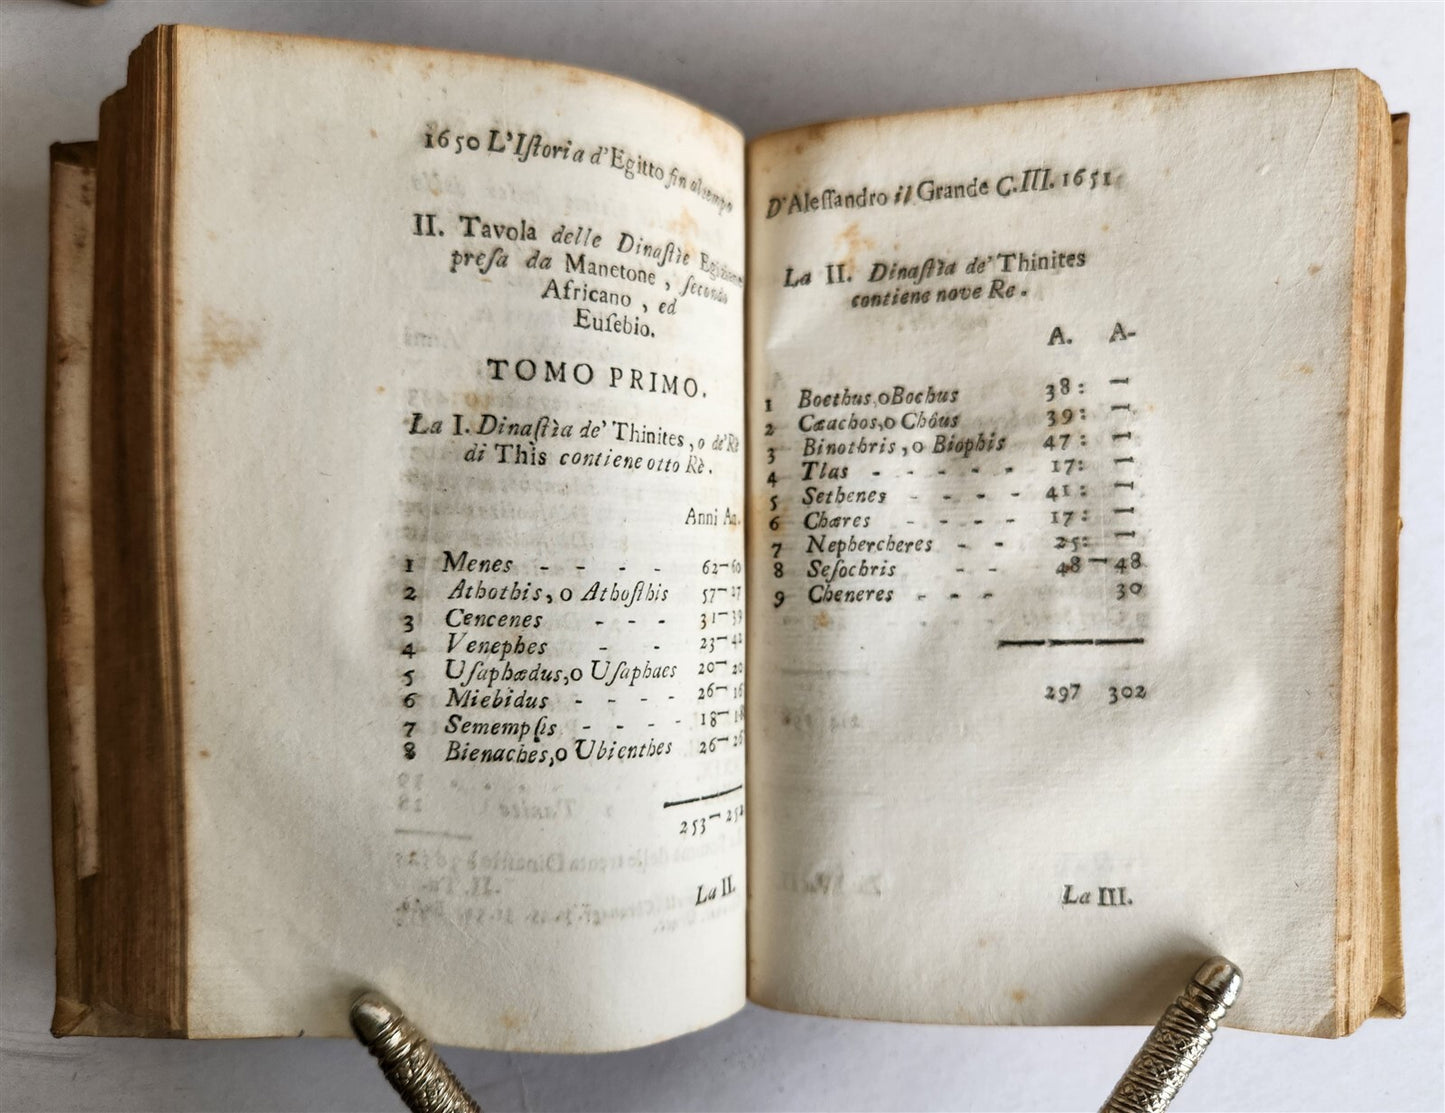 1650 L'Iſtoria d'Egitto fin al tempo
II. Tavola delle Dinaſtìe
preſa da Manetone, ſecondo
Africano, ed
Euſebio.
TOMO PRIMO.
La I. Dinaſtìa de' Thinites, o de' Rè
di This contiene otto Rè.
Anni An.
1 Menes - - - - 62-60
2 Athothis, o Athoſthis 57-27
3 Cencenes - - - 31-39
4 Venephes - - 23-42
5 Uſaphædus, o Uſaphaes 20-20
6 Miebidus - - - - 26-16
7 Semempſis - - - - 18-18
8 Bienaches, o Ubienthes 26-26
253-252
La II.
D'Aleſſandro il Grande C.III. 1651
La II. Dinaſtìa de' Thinites
contiene nove Re.
A. A-
1 Boethus, o Bochus 38: —
2 Cæachos, o Chôus 39: —
3 Binothris, o Biophis 47: —
4 Tlas - - - - - 17: —
5 Sethenes - - - - 41: —
6 Chæres - - - - 17: —
7 Nephercheres - - 25: —
8 Seſochris - - 48-48
9 Cheneres - - - 30
297 302
La III.